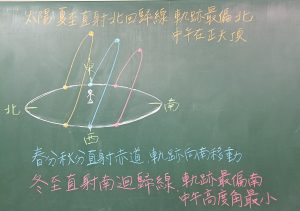 太陽夏至直射北回歸線 軌跡最偏北
中午在正天頂
東
北
南
西
春分秋分直射赤道 軌跡向南移動
冬至直射南迴歸線 軌跡最偏南
中午高度角最小